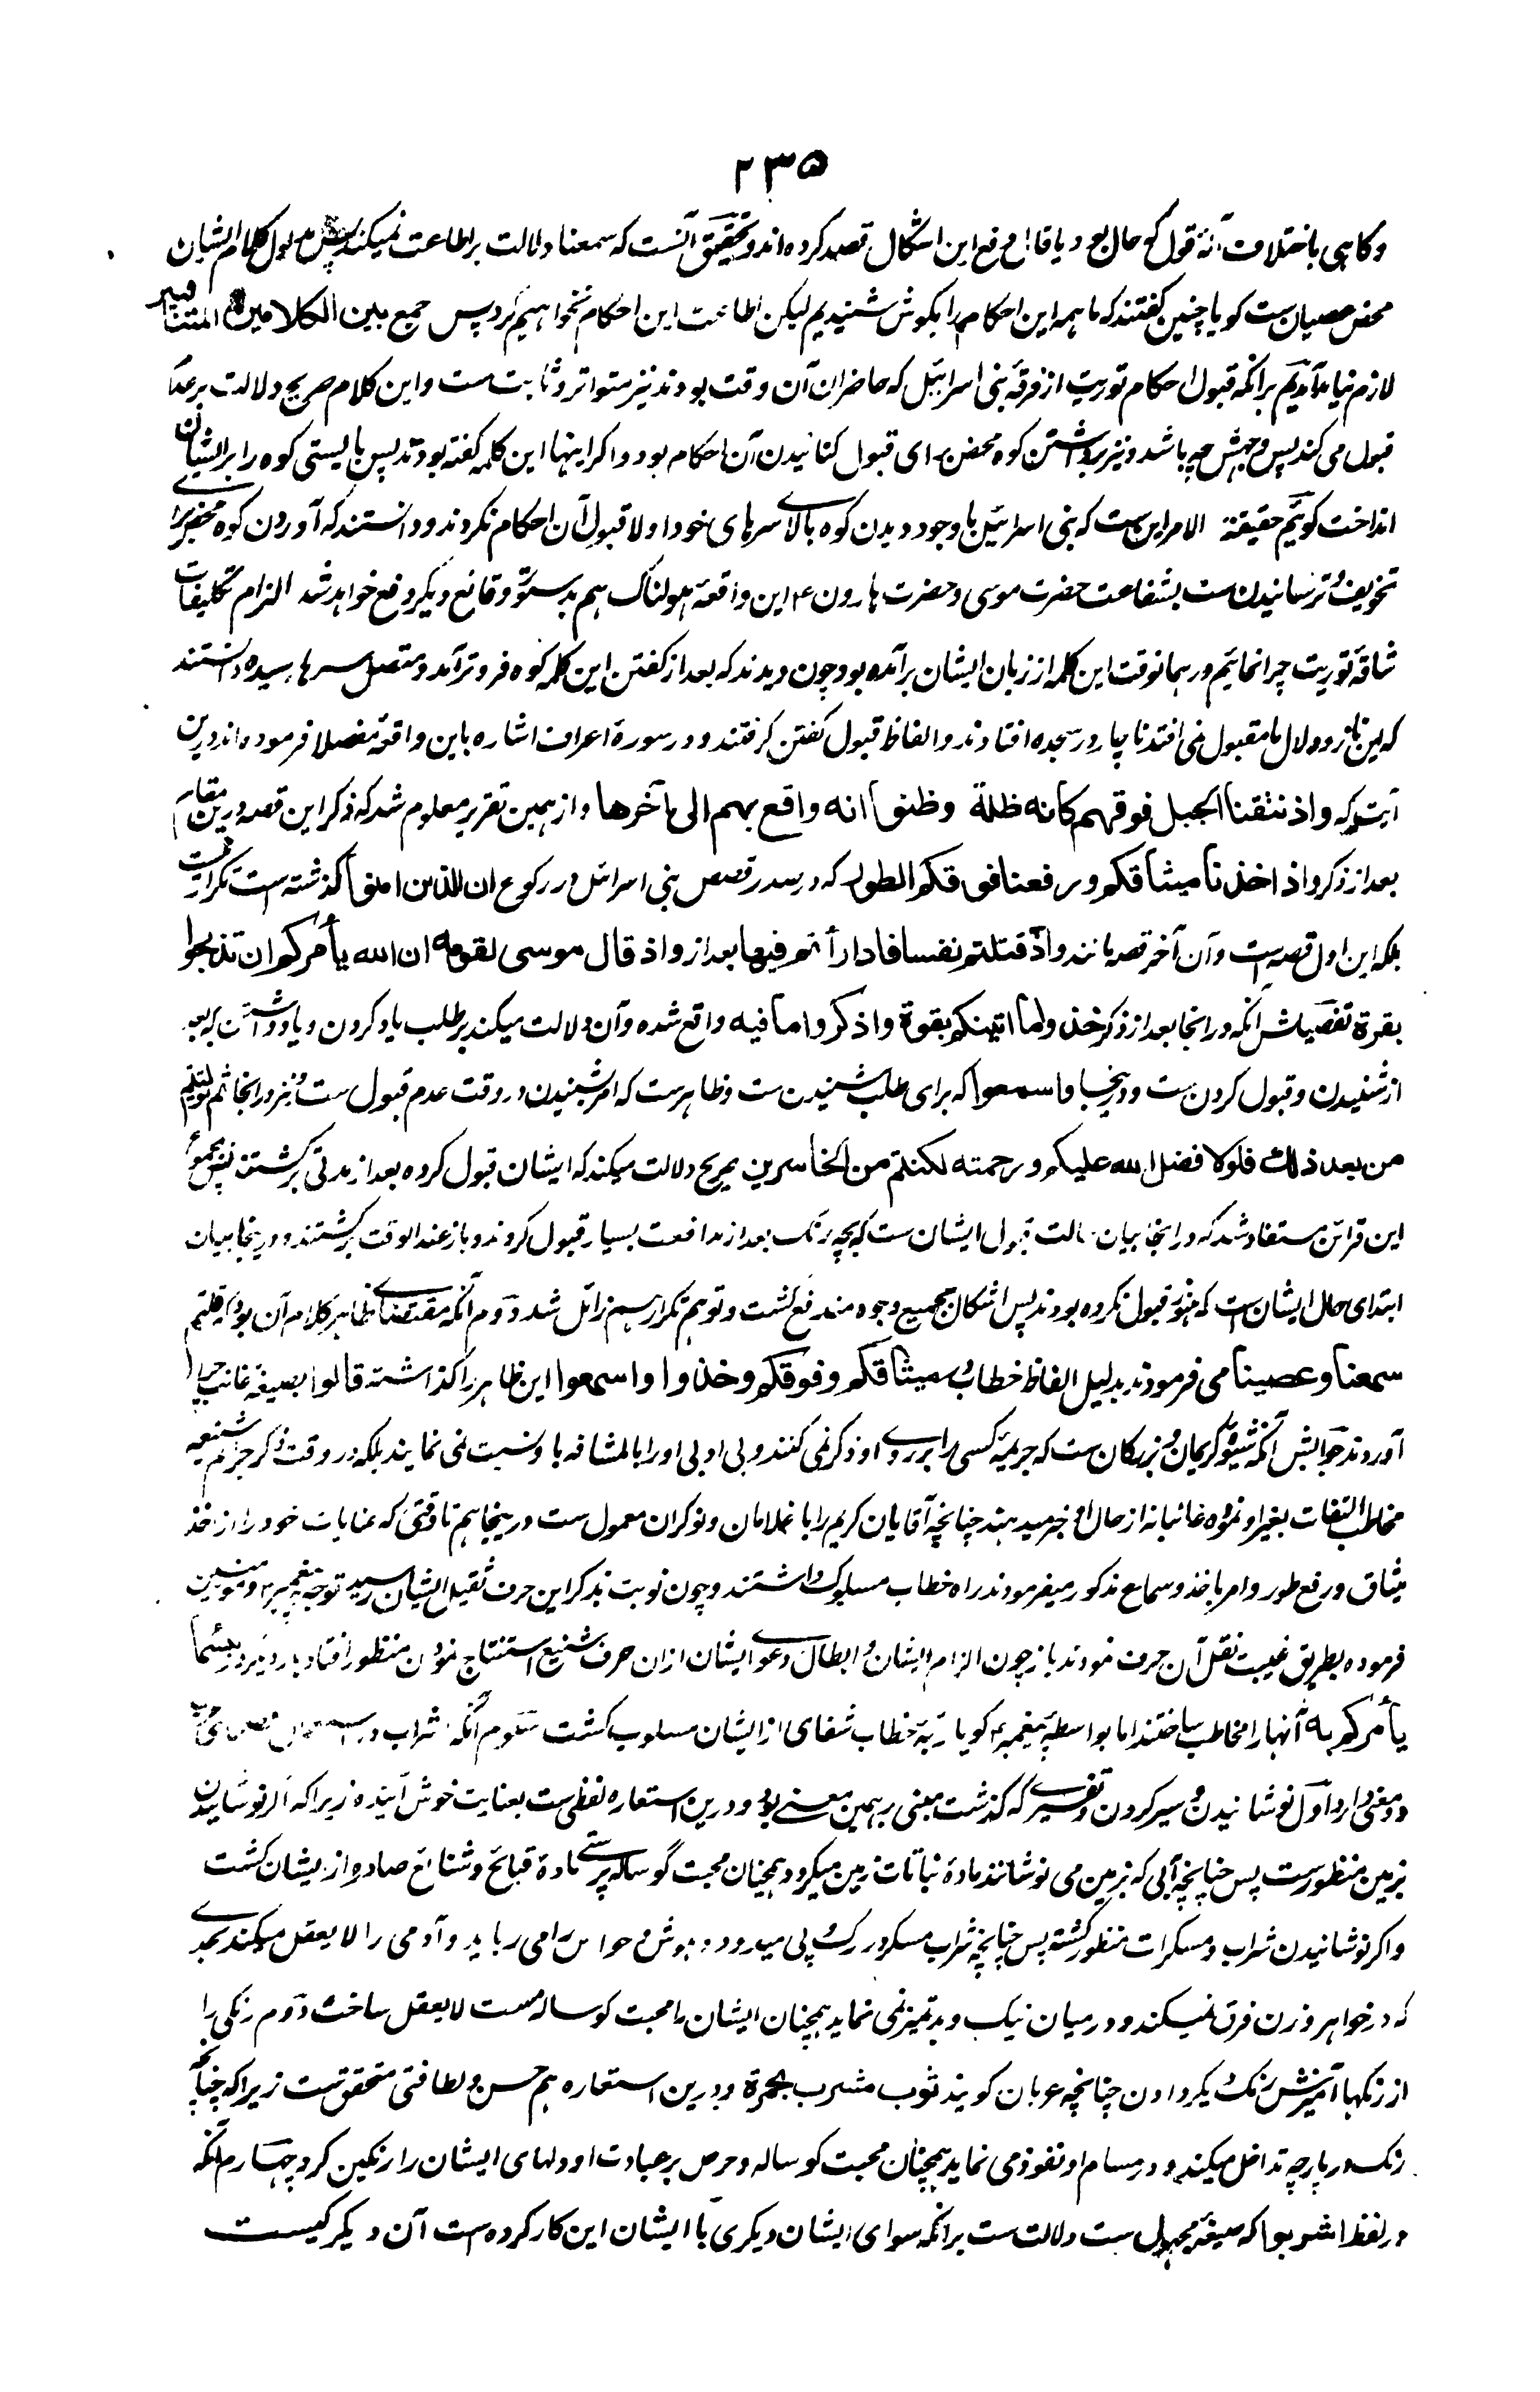 ۲۳۵
وکاهی باختلاف آنکه قول کو حال بود یا قال رفع این اشکال قصد کرده‌اند و تحقیق آنست که سمعنا دلالت بر اطاعت نمیکند پس مدلول کلام ایشان
محض عصیان ست کویا چنین کفتند که ما همه این احکام را بکوش شنیدیم لیکن اطاعت این احکام نخواهیم کرد پس جمع بین الکلامین المتنافیین
لازم نیامد آمدیم برانکه قبول احکام توریت از فرقهٔ بنی اسرائیل که حاضران آن وقت بودند نیز متواتر و ثابت ست و این کلام صریح دلالت بر عدم
قبول می کند پس وجهش چه باشد و نیز برداشتن کوه محض برای قبول کنانیدن آن احکام بود و اکر اینها این کلمه کفته بودند پس بایستی کوه را بر ایشان
انداخت کوییم حقیقة الامر این ست که بنی اسرائیل با وجود دیدن کوه بالای سرهای خود اولا قبول آن احکام نکردند و دانستند که آوردن کوه محض برای
تخویف و ترسانیدن ست بشفاعت حضرت موسی و حضرت هارون ۴ این واقعهٔ هولناک هم بدستور وقائع دیکر دفع خواهد شد التزام تکلیفات
شاقهٔ توریت چرا نمائیم و رهمانوقت این کلمه از زبان ایشان برآمده بود چون دیدند که بعد از کفتن این کلمه کوه فروتر آمد و متصل سرها رسید دانستند
که این ناز و دلال ما مقبول نمی افتد ناچار در سجده افتادند و الفاظ قبول کفتن کرفتند و در سورهٔ اعراف اشاره باین واقعه مفصلا فرموده‌اند درین
آیت که واذ نتقنا الجبل فوقهم کانه ظلة وظنوا انه واقع بهم الی آخرها و از همین تقریر معلوم شد که ذکر این قصه درین مقام
بعد از ذکر واذ اخذنا میثاقکم ورفعنا فوقکم الطور که در صدر قصص بنی اسرائیل در رکوع ان الذین امنوا کذشته است تکرار نیست
بلکه این اول قصه است و آن آخر قصه مانند واذ قتلتم نفسا فادارأتم فیها بعد از واذ قال موسی لقومه ان الله یأمرکم ان تذبحوا
بقرة تفصیلش آنکه در انجا بعد از ذکر خذوا ما اتینکم بقوة واذکروا ما فیه واقع شده و آن دلالت میکند بر طلب یاد کردن و یاد داشتن که بعد
از شنیدن و قبول کردن ست و درینجا واسمعوا که برای طلب شنیدن ست و ظاهرست که امر بشنیدن در وقت عدم قبول ست و نیز در انجا ثم تولیتم
من بعد ذلك فلولا فضل الله علیکم ورحمته لکنتم من الخاسرین صریح دلالت میکند که ایشان قبول کرده بعد از مدتی برکشتند پس بمجموع
این قرائن مستفاد شد که در انجا بیان حالت قبول ایشان ست که بچه رنک بعد از مدافعت بسیار قبول کردند و باز عند الوقت برکشتند و درینجا بیان
ابتدای حال ایشان ست که هنوز قبول نکرده بودند پس اشکال بجمیع وجوه مندفع کشت و توهم تکرار هم زائل شد دوم آنکه مقتضای ظاهر کلام آن بود که قلتم
سمعنا وعصینا می فرمودند بدلیل الفاظ خطاب میثاقکم وفوقکم وخذوا واسمعوا این ظاهر را کذاشته قالوا بصیغهٔ غائب چرا
آوردند جوابش آنکه شیوهٔ کریمان و بزرکان ست که جریمهٔ کسی را بر روی او ذکر نمی کنند و بی ادبی او را بالمشافه با و نسبت نمی نمایند بلکه در وقت ذکر جرائم شنیعه
مخاطب التفات بغیر او نموده غائبانه از حال او خبر میدهند چنانچه آقایان کریم را با غلامان و نوکران معمول ست درینجا هم تا وقتی که عنایات خود را از اخذ
میثاق و رفع طور و امر باخذ و سماع مذکور میفرمودند راه خطاب مسلوک داشتند و چون نوبت بذکر این حرف ثقیل ایشان رسید توجه بپیغمبر ۴ و مؤمنین
فرموده بطریق غیبت نقل آن حرف نمودند باز چون الزام ایشان و ابطال دعوای ایشان ازان حرف شنیع استنتاج نمودن منظور افتاد بار دیکر در بئسما
یأمرکم به آنها را مخاطب ساختند اما بواسطهٔ پیغمبر ۴ کویا رتبهٔ خطاب شفاهی از ایشان مسلوب کشت سوم آنکه اشراب در استعمال
دو معنی دارد اول نوشانیدن و سیر کردن و تفسیری که کذشت مبنی بر همین معنی بود و درین استعاره لفظی ست بغایت خوش آینده زیرا که اکر نوشانیدن
زمین منظورست پس چنانچه آبی که بزمین می نوشانند مادهٔ نباتات زمین میکردد همچنان محبت گوساله پرستی مادهٔ قبائح و شنائع صادره از ایشان کشت
و اکر نوشانیدن شراب و مسکرات منظور کشته پس چنانچه شراب مسکر در رک و پی میدود و هوش و حواس را می رباید و آدمی را لا یعقل میکند بحدی
که در خواهر و زن فرق نمیکند و در میان نیک و بد تمیز نمی نماید همچنان ایشان را محبت کوساله مست لا یعقل ساخت دوم رنکی را
از رنکها آمیزش رنک دیکر دادن چنانچه عربان کویند ثوب مشرب بحمرة و درین استعاره هم حسن و لطافتی متحقق ست زیرا که چنانچه
رنک در پارچه تداخل میکند و در مسام او نفوذ می نماید همچنان محبت کوساله و حرص بر عبادت او دلهای ایشان را رنکین کرد چهارم آنکه
در لفظ اشربوا که صیغهٔ مجهول ست دلالت ست برانکه سوای ایشان دیکری با ایشان این کار کرده ست آن دیکر کیست